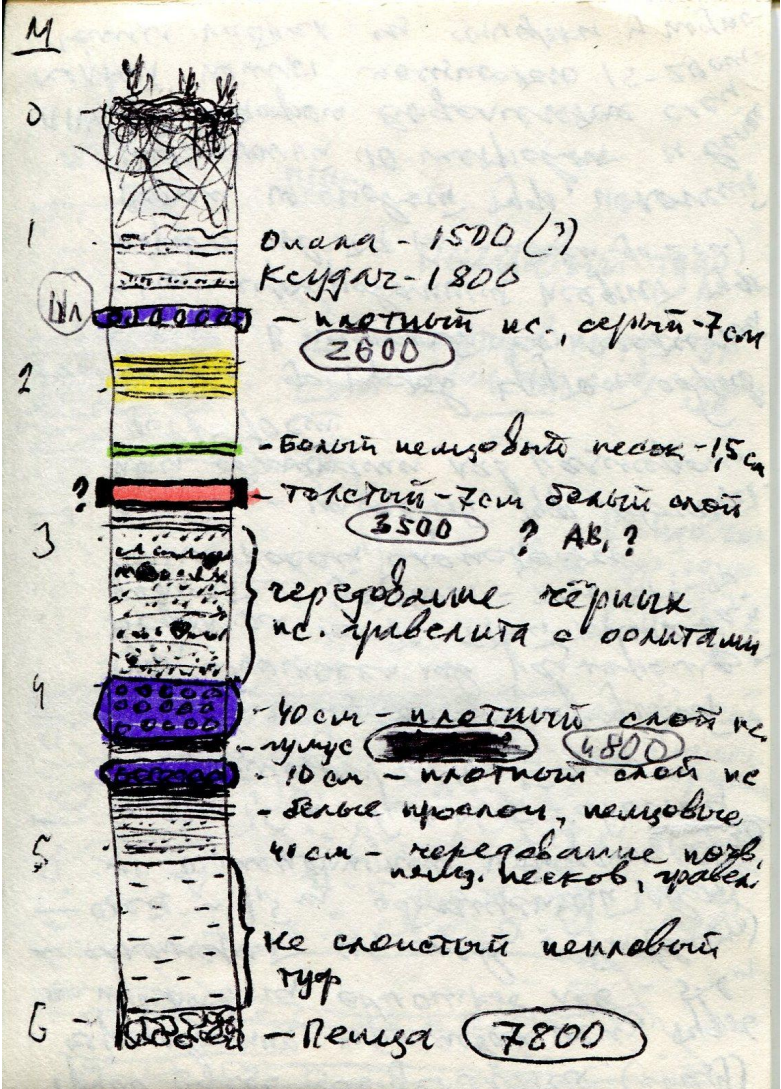 М
0
1
Опала - 1500 (?)
Ксудач - 1800
- плотный пс., серый - 7 см
2600
2
- Белый пемзовый песок - 1,5 см
?
- толстый - 7 см белый слой
3500 ? АВ, ?
3
чередование чёрных
пс. гравелита с
4
- 40 см - плотный слой пс.
- гумус 4800
- 10 см - плотный слой пс
- белые прослои, пемзовые
5
41 см - чередование почв,
пемз. песков, гравел.
не слоистый пепловый
туф
6 - - Пемза 7800